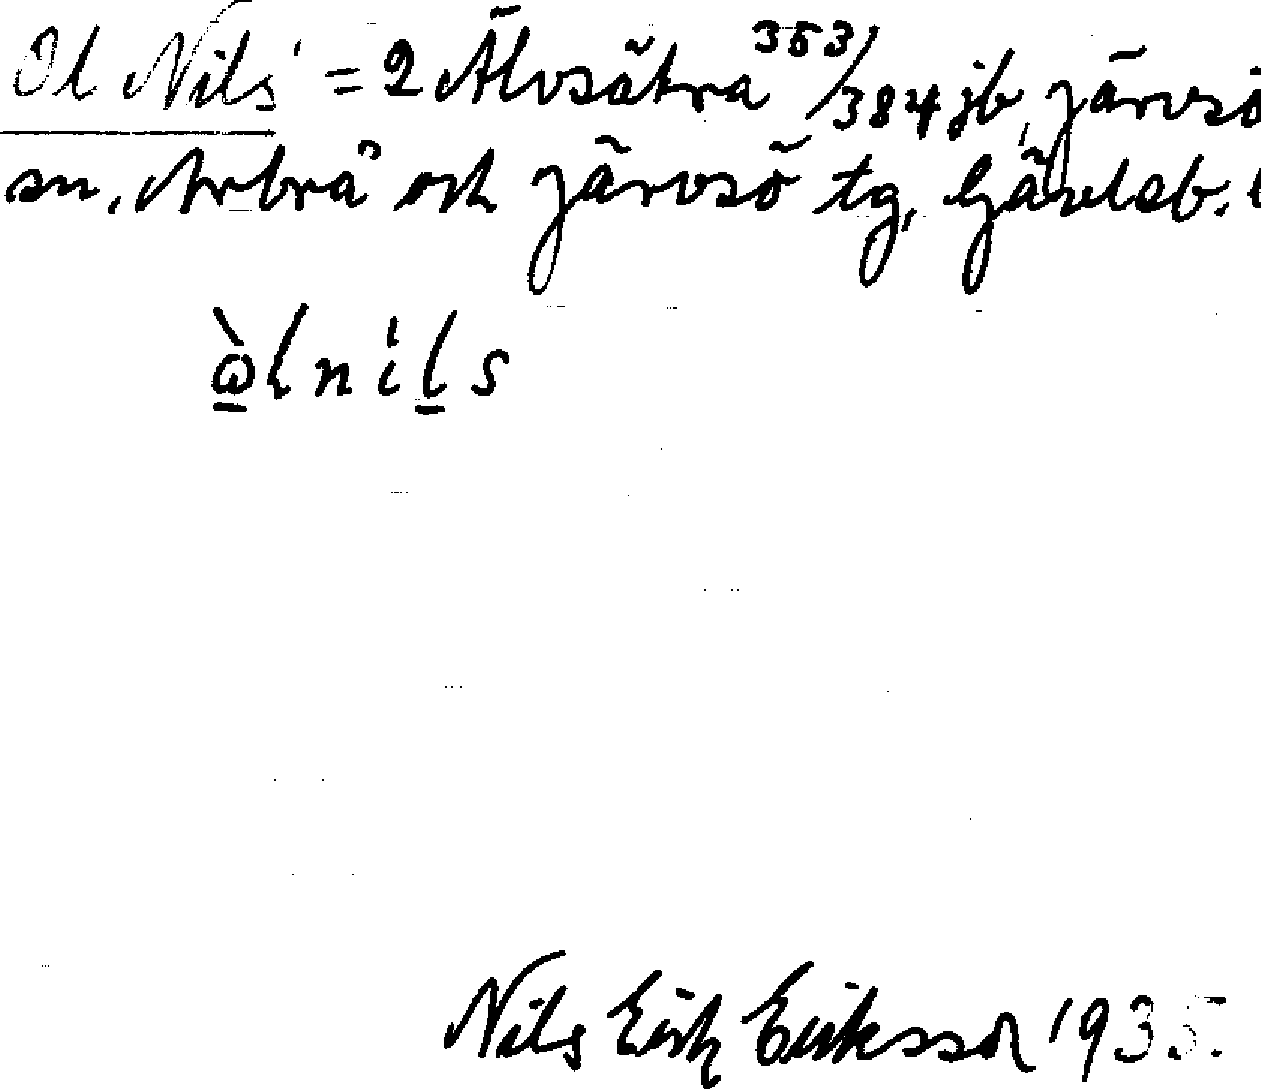 Ol Nils' = 2 Älvsätra 353/384 jb, Järvsö
sn, Arbrå och Järvsö tg, Gävleb. l
ὼlnils
Nils Erik Eriksson 1935.